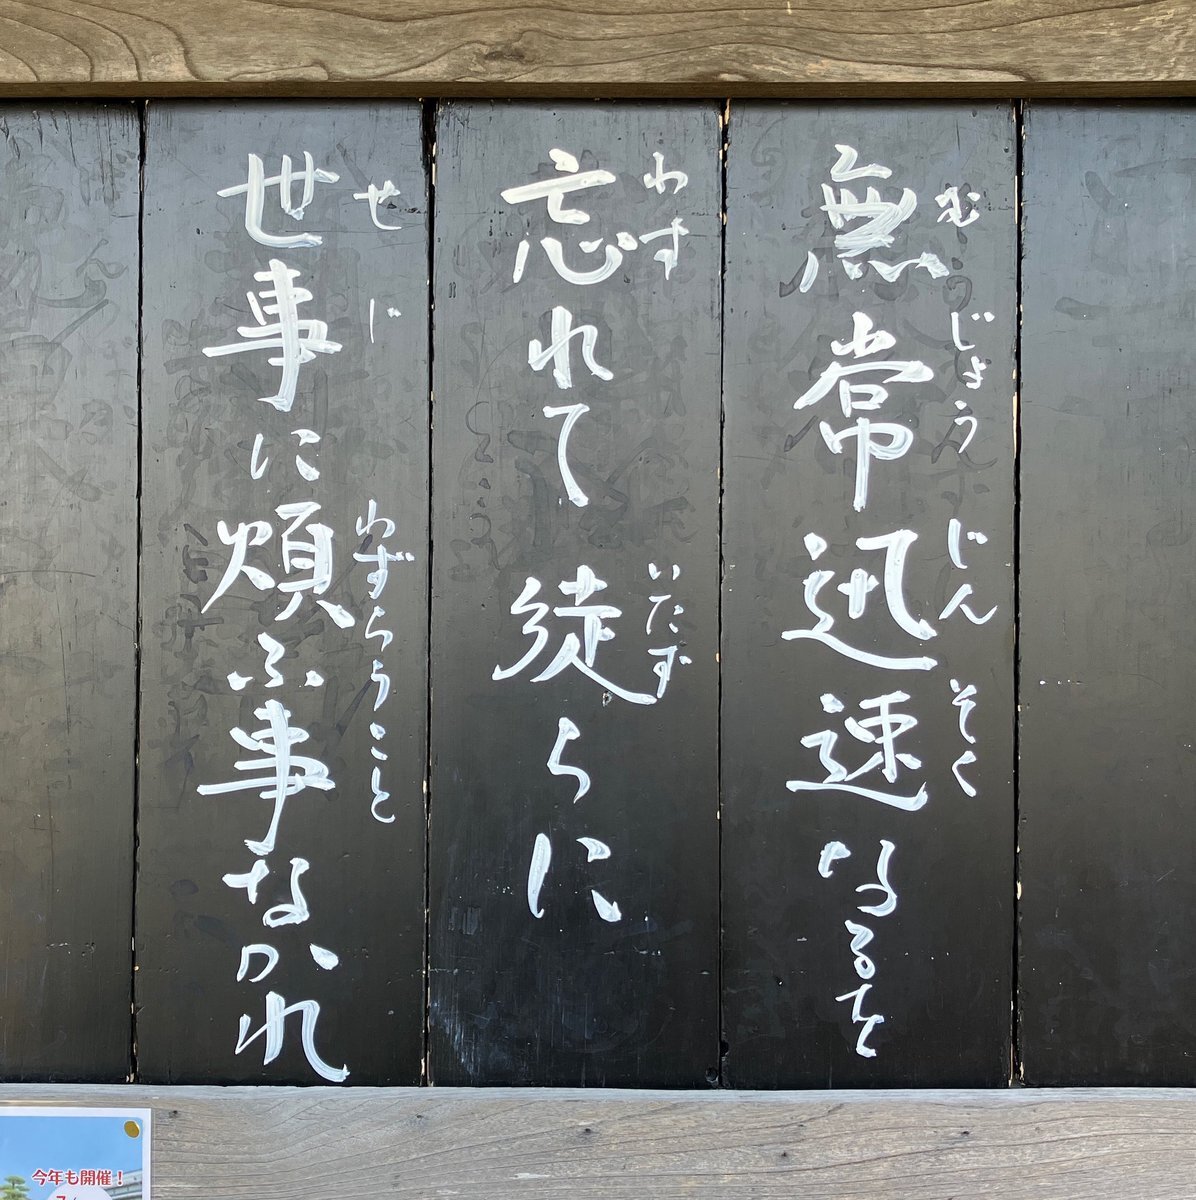 無常迅速なるを
むじょうじんそく
忘れて徒らに
わすいたず
世事に煩ふ事なかれ
せじわずらうこと
今年も開催！